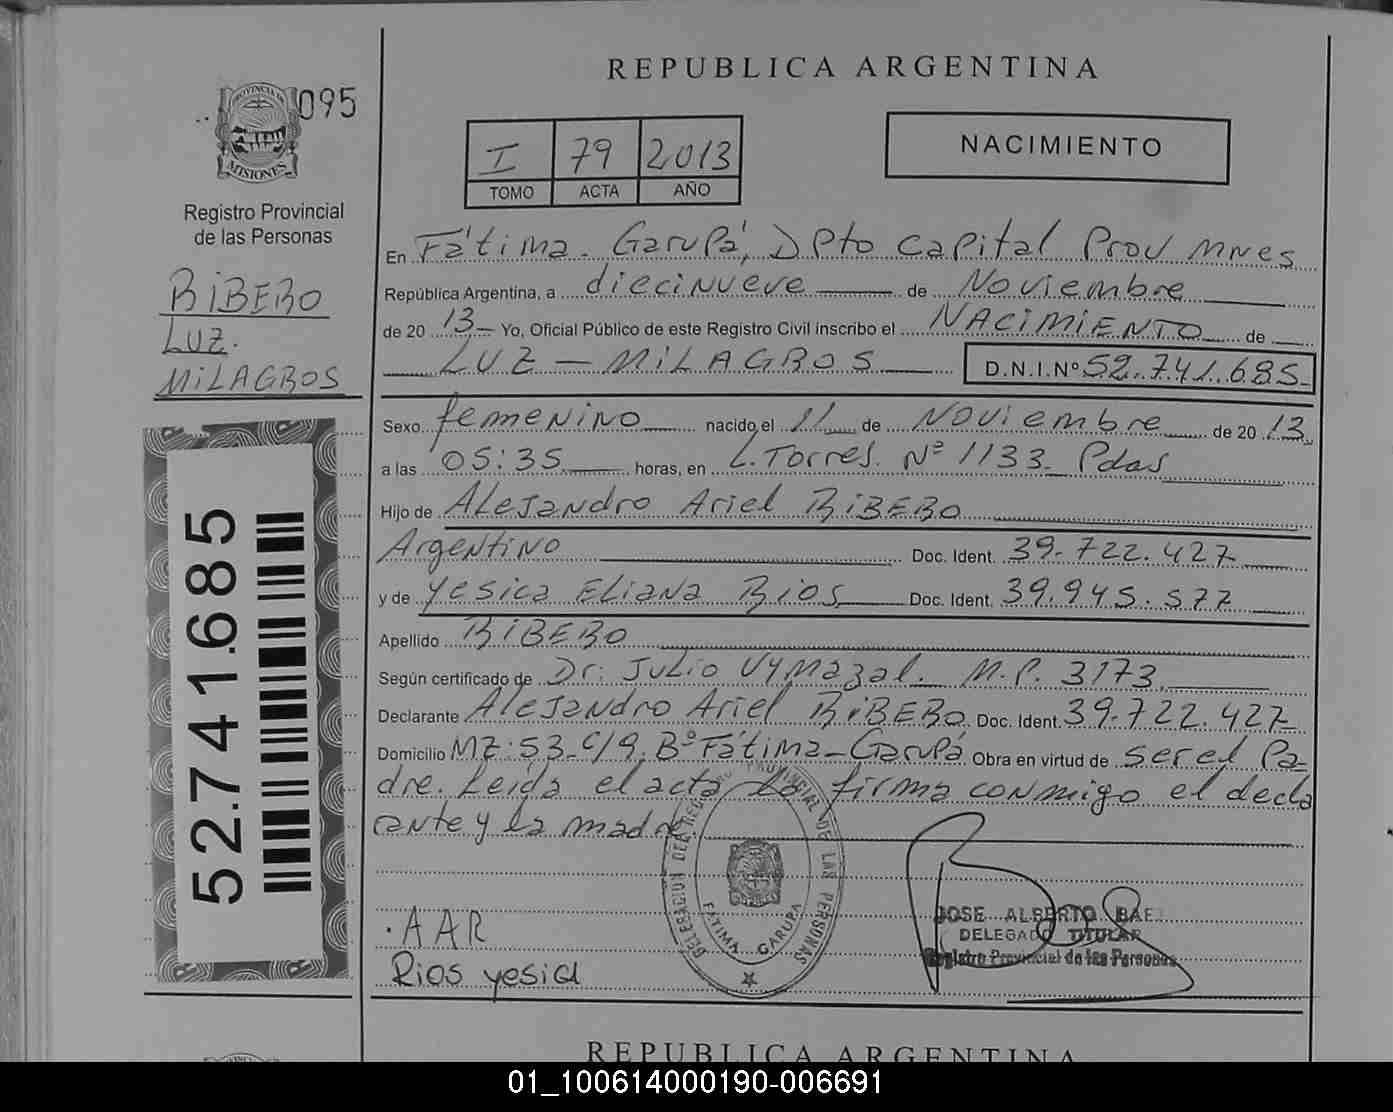 REPUBLICA ARGENTINA
095
PROVINCIA DE
MISIONES
Registro Provincial
de las Personas
RIBERO
LUZ.
MILAGROS
52.741.685
I 79 2013
TOMO ACTA AÑO
NACIMIENTO
En Fátima. Garupá, Dpto Capital Prov Mnes
República Argentina, a diecinueve de Noviembre
de 20 13 Yo, Oficial Público de este Registro Civil inscribo el NACIMIENTO de
LUZ - MILAGROS D.N.I.Nº 52.741.685
Sexo femenino nacido el 11 de Noviembre de 20 13
a las 05:35 horas, en L. Torres. Nº 1133 Pdas
Hijo de Alejandro Ariel RIBERO
Argentino Doc. Ident. 39.722.427
y de Yesica Eliana Rios Doc. Ident. 39.945.577
Apellido RIBERO
Según certificado de Dr. Julio Vymazal. M.P. 3173
Declarante Alejandro Ariel RIBERO Doc. Ident. 39.722.427
Domicilio MZ:53 C/9. Bº Fátima-Garupá Obra en virtud de ser el Pa-
dre. Leída el acta la firma conmigo el decla
rante y la madre
DELEGACION DEL REGISTRO PROVINCIAL DE LAS PERSONAS
FATIMA GARUPA
JOSE ALBERTO BAEZ
DELEGADO TITULAR
Registro Provincial de las Personas
.AAR
Rios yesica
REPUBLICA ARGENTINA
01_100614000190-006691